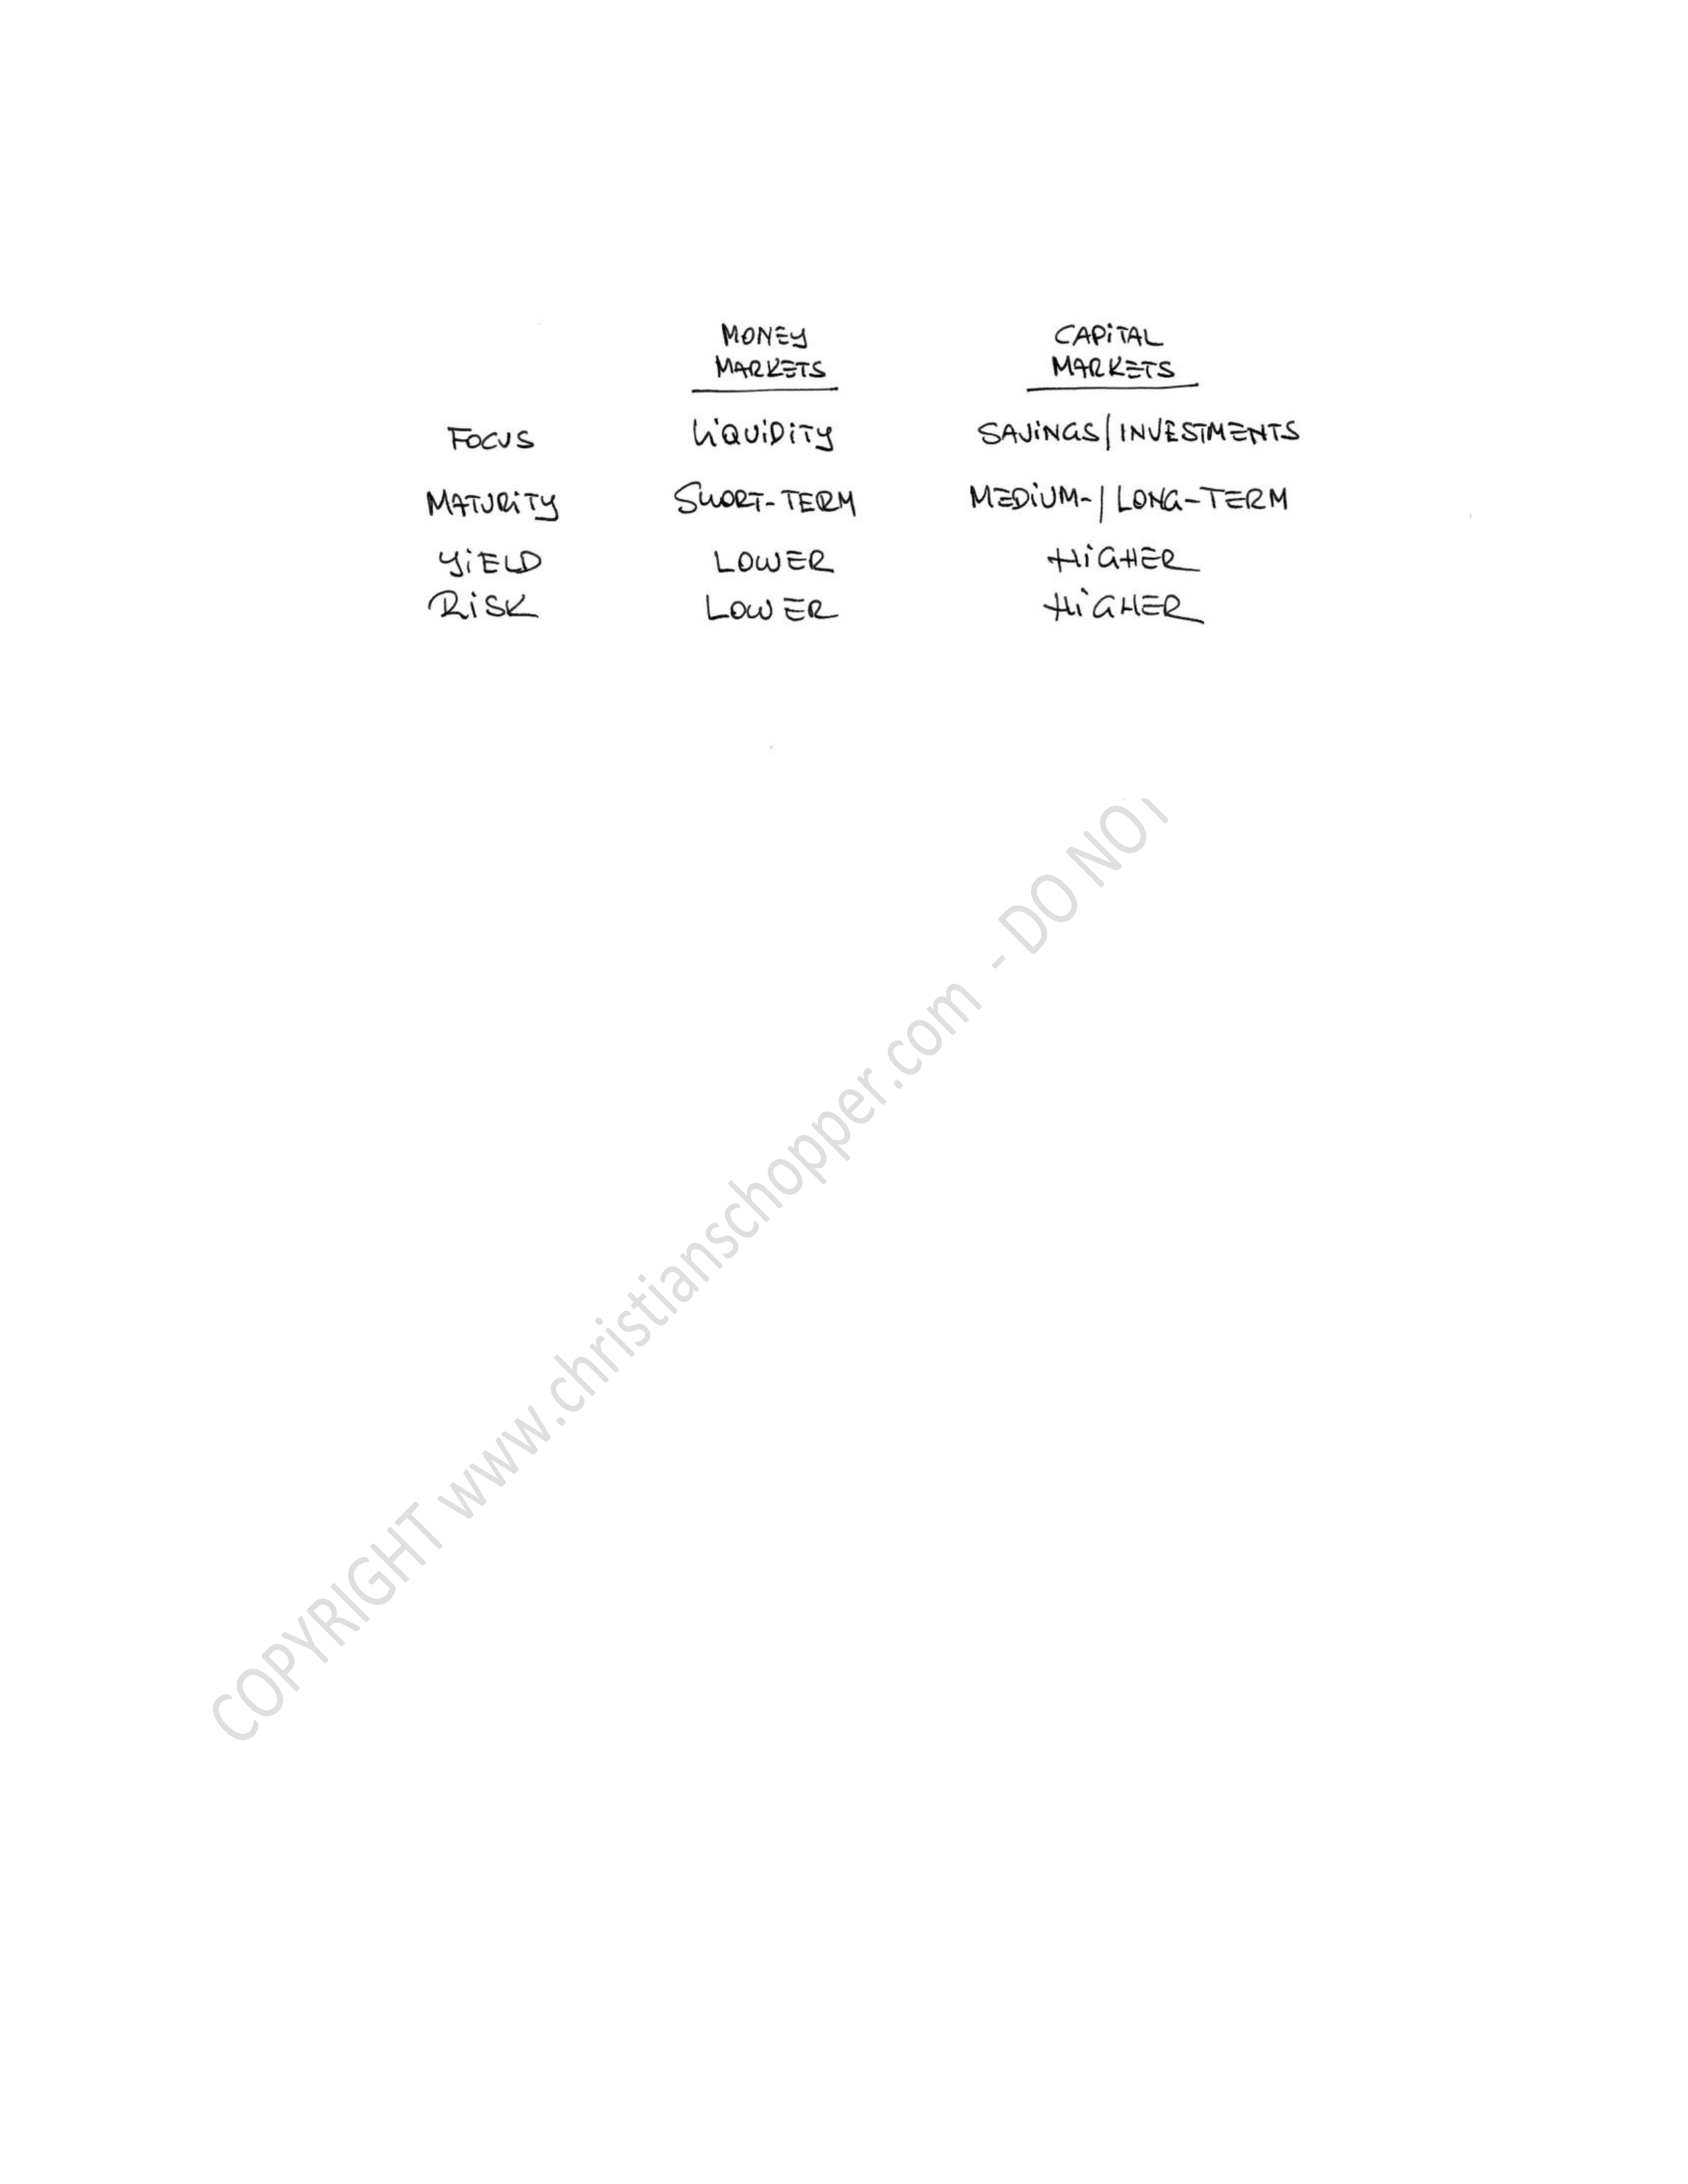 MONEY MARKETS CAPITAL MARKETS
FOCUS LIQUIDITY SAVINGS/INVESTMENTS
MATURITY SHORT-TERM MEDIUM-/LONG-TERM
YIELD LOWER HIGHER
RISK LOWER HIGHER
COPYRIGHT www.christianschopper.com - DO NOT